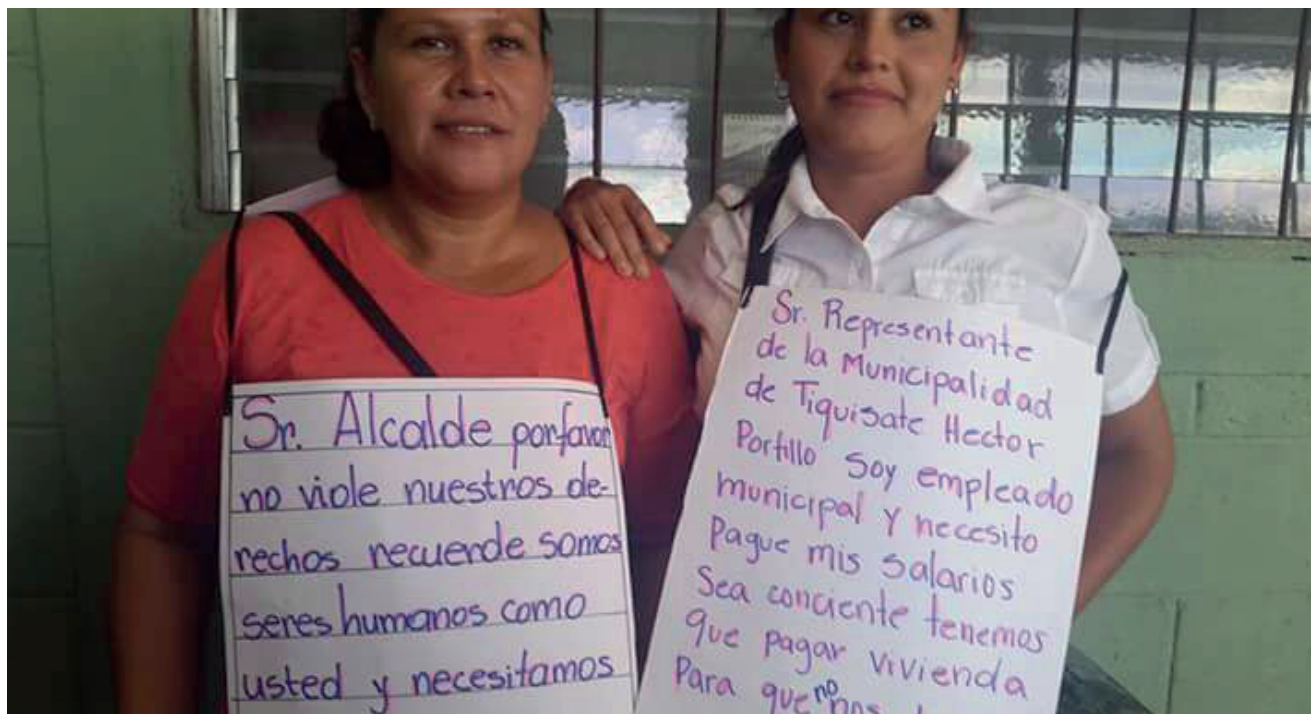 Sr. Alcalde porfavor
no viole nuestros de-
rechos recuerde somos
seres humanos como
usted y necesitamos
Sr. Representante
de la Municipalidad
de Tiquisate Hector
Portillo soy empleado
municipal y necesito
Pague mis salarios
Sea conciente tenemos
que pagar vivienda
Para que no nos